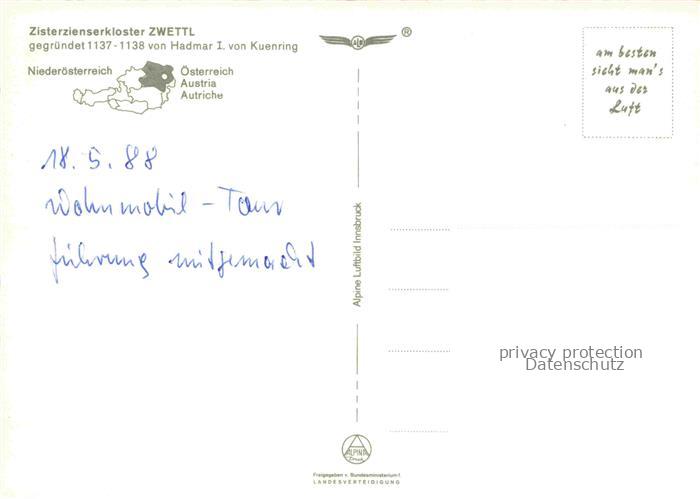 Zisterzienserkloster ZWETTL
gegründet 1137-1138 von Hadmar I. von Kuenring
Niederösterreich
Österreich
Austria
Autriche
®
am besten
sieht man's
aus der
Luft
18. 5. 88
Wohnmobil - Tour
Führung mitgemacht
Alpine Luftbild Innsbruck
privacy protection
Datenschutz
ALPINA
Freigegeben v. Bundesministerium f.
LANDESVERTEIDIGUNG